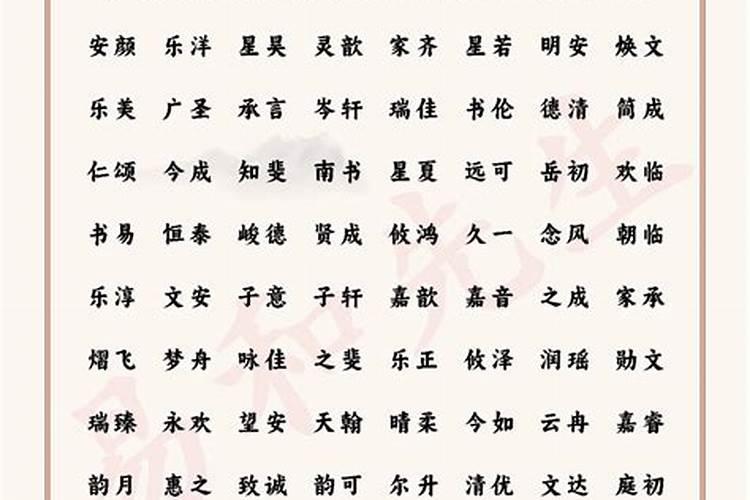 安颜 乐洋 星昊 灵歆 家齐 星若 明安 焕文
乐美 广圣 承言 岑轩 瑞佳 书伦 德清 简成
仁颂 今成 知斐 南书 星夏 远可 岳初 欢临
书易 恒泰 峻德 贤成 攸鸿 久一 念风 朝临
乐淳 文安 子意 子轩 嘉歆 嘉音 之成 家承
熠飞 梦舟 咏佳 之斐 乐正 攸泽 润瑶 勋文
瑞臻 永欢 望安 天翰 晴柔 今如 云冉 嘉睿
韵月 惠之 致诚 韵可 尔升 清优 文达 庭初
易和先生